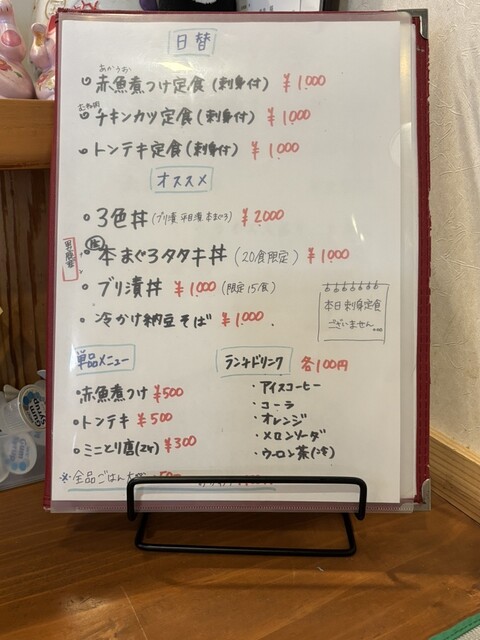 日替
あかうお
赤魚煮つけ定食(刺身付) ¥1.000
チキンカツ定食(刺身付) ¥1,000
トンテキ定食(刺身付) ¥1,000
オススメ
3色丼(ブリ漬 平目漬 本まぐろ) ¥2.000
本まぐろタタキ丼(20食限定) ¥1,000
ブリ漬丼 ¥1.000(限定15食)
冷かけ納豆そば ¥1.000.
本日刺身定食
ございません
単品メニュー
赤魚煮つけ ¥500
トンテキ ¥500
ミニとり唐(2ヶ) ¥300
※全品ごはん
ランチドリンク 各100円
アイスコーヒー
コーラ
オレンジ
メロンソーダ
ウーロン茶
Gum Syrup